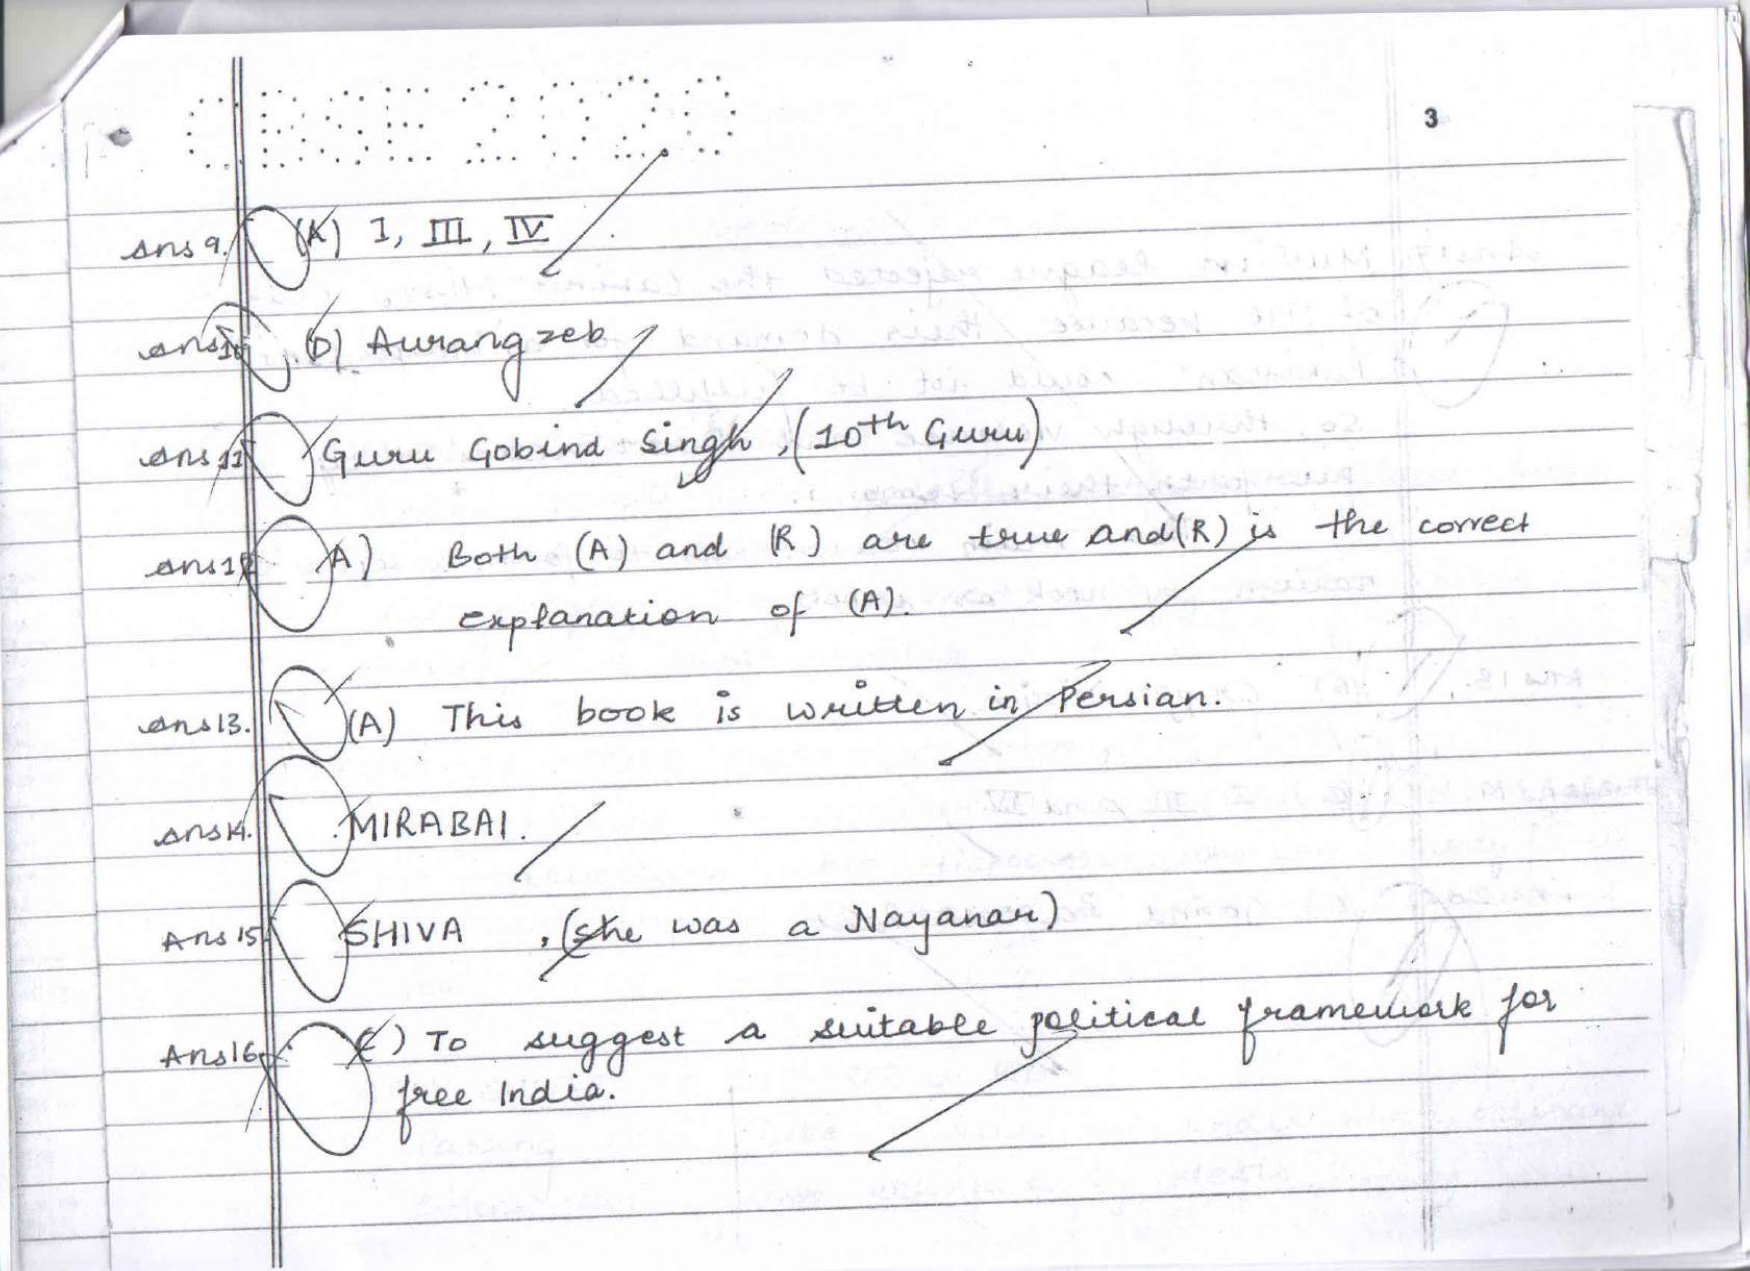 CBSE 2020
3
Ans 9. (A) I, III, IV
Ans 10 (D) Aurangzeb
Ans 11 Guru Gobind Singh, (10th Guru)
Ans 12 A) Both (A) and (R) are true and (R) is the correct
explanation of (A).
Ans 13. (A) This book is written in Persian.
Ans 14. MIRABAI.
Ans 15 SHIVA , (she was a Nayanar)
Ans 16 C) To suggest a suitable political framework for
free India.